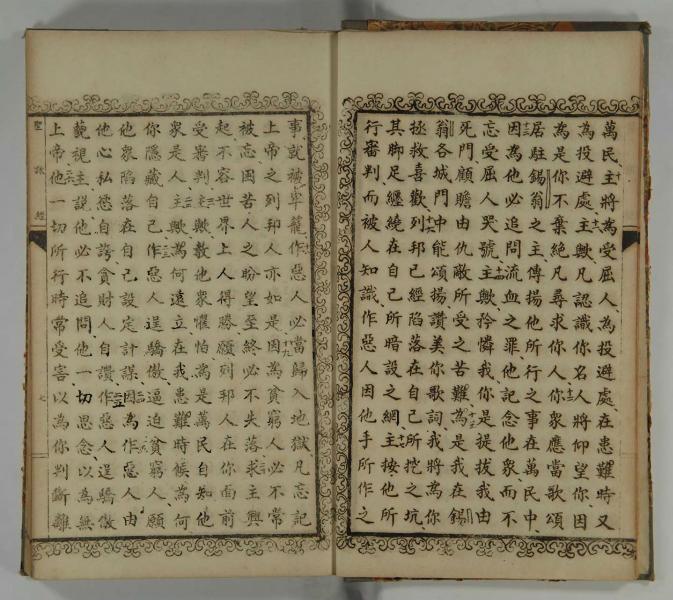 萬民主將為受屈人為投避處在患難時又
為投避處主歟凡認識你名人將仰望你因
為是你不棄絕凡尋求你人你衆應當歌頌
居駐錫翁之主傳揚他所行之事在萬民中
因為他必追問流血之罪他記念他衆而不
忘受屈人哭號主歟矜憐我你是提拔我由
死門顧瞻由仇敵所受之苦難為是我在錫
翁各城門中能頌揚讚美你歌詞我將為你
拯救喜歡列邦已經陷落在自己所挖之坑
其脚足纏繞在自己所暗設之網主按他所
行審判而被人知識作惡人因他手所作之
事就被牢籠作惡人必當歸入地獄凡忘記
上帝之列邦人亦如是因為貧窮人必不常
被忘困苦人之盼望至終必不失落求主興
起不容世界上人得勝願列邦人在你面前
受審判主歟教他衆懼怕為是萬民自知他
衆是人主歟為何遠立在我患難時候為何
你隱藏自己作惡人逞驕傲逼迫貧窮人願
他衆陷落在自己設定計謀因為作惡人由
他心私慾自誇貪財人自讚作惡人逞驕傲
藐視主說他必不追問他一切思念以為無
上帝他一切所行時常受害以為你判斷離
聖詠經